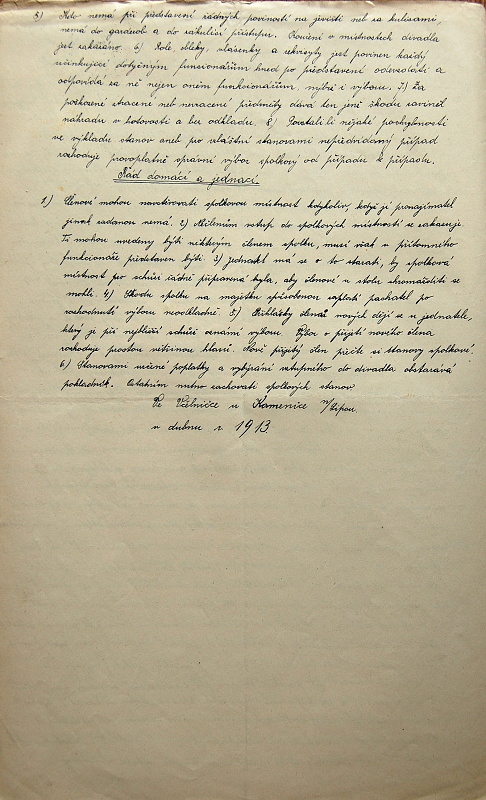 5) Kdo nemá při představení žádných povinností na jevišti neb za kulisami,
nemá do garderob a do zákulisí přístupu. Kouření v místnostech divadla
jest zakázáno. 6) Role obleky, vlásenky a rekvisyty jest povinen každý
účinkující dotyčným funkcionářům hned po představení odevzdati a
odpovídá za ně nejen oněm funkcionářům, nýbrž i výboru. 7) Za
poškozené ztracené neb nevrácené předměty dává ten jenž škodu zavinil
náhradu v hotovosti a bez odkladu. 8) Povstali-li nějaké pochybnosti
ve výkladu stanov aneb pro vlastní stanovami nepředvídaný případ
rozhoduje provoplatně správní výbor spolkový od případu k případu.
Řád domácí a jednací.
1.) Členové mohou navštěvovati spolkovou místnost kdykoliv, když ji pronajímatel
jinak zadanou nemá. 2) Nečlenům vstup do spolkových místností se zakazuje.
Ti mohou uvedeny býti některým členem spolku, musí však u přítomného
funkcionáře představen býti. 3) jednatel má se o to starati, by spolková
místnost pro schůzi řádně připravena byla, aby členové u stolu shromážditi se
mohli. 4) Škodu spolku na majetku způsobenou zaplatí pachatel po
rozhodnutí výboru neodkladně. 5) Přihlášky členů nových dějí se u jednatele,
který je při nejbližší schůzi oznámí výboru. Výbor o přijetí nového člena
rozhoduje prostou většinou hlasů. Nově přijatý člen přečte si stanovy spolkové.
6) Stanovami určené poplatky a vybírání vstupného do divadla obstarává
pokladník. Ostatním nutno zachovati spolkových stanov
Ve Včelničce u Kamenice n/Lipou.
v dubnu r. 1913.